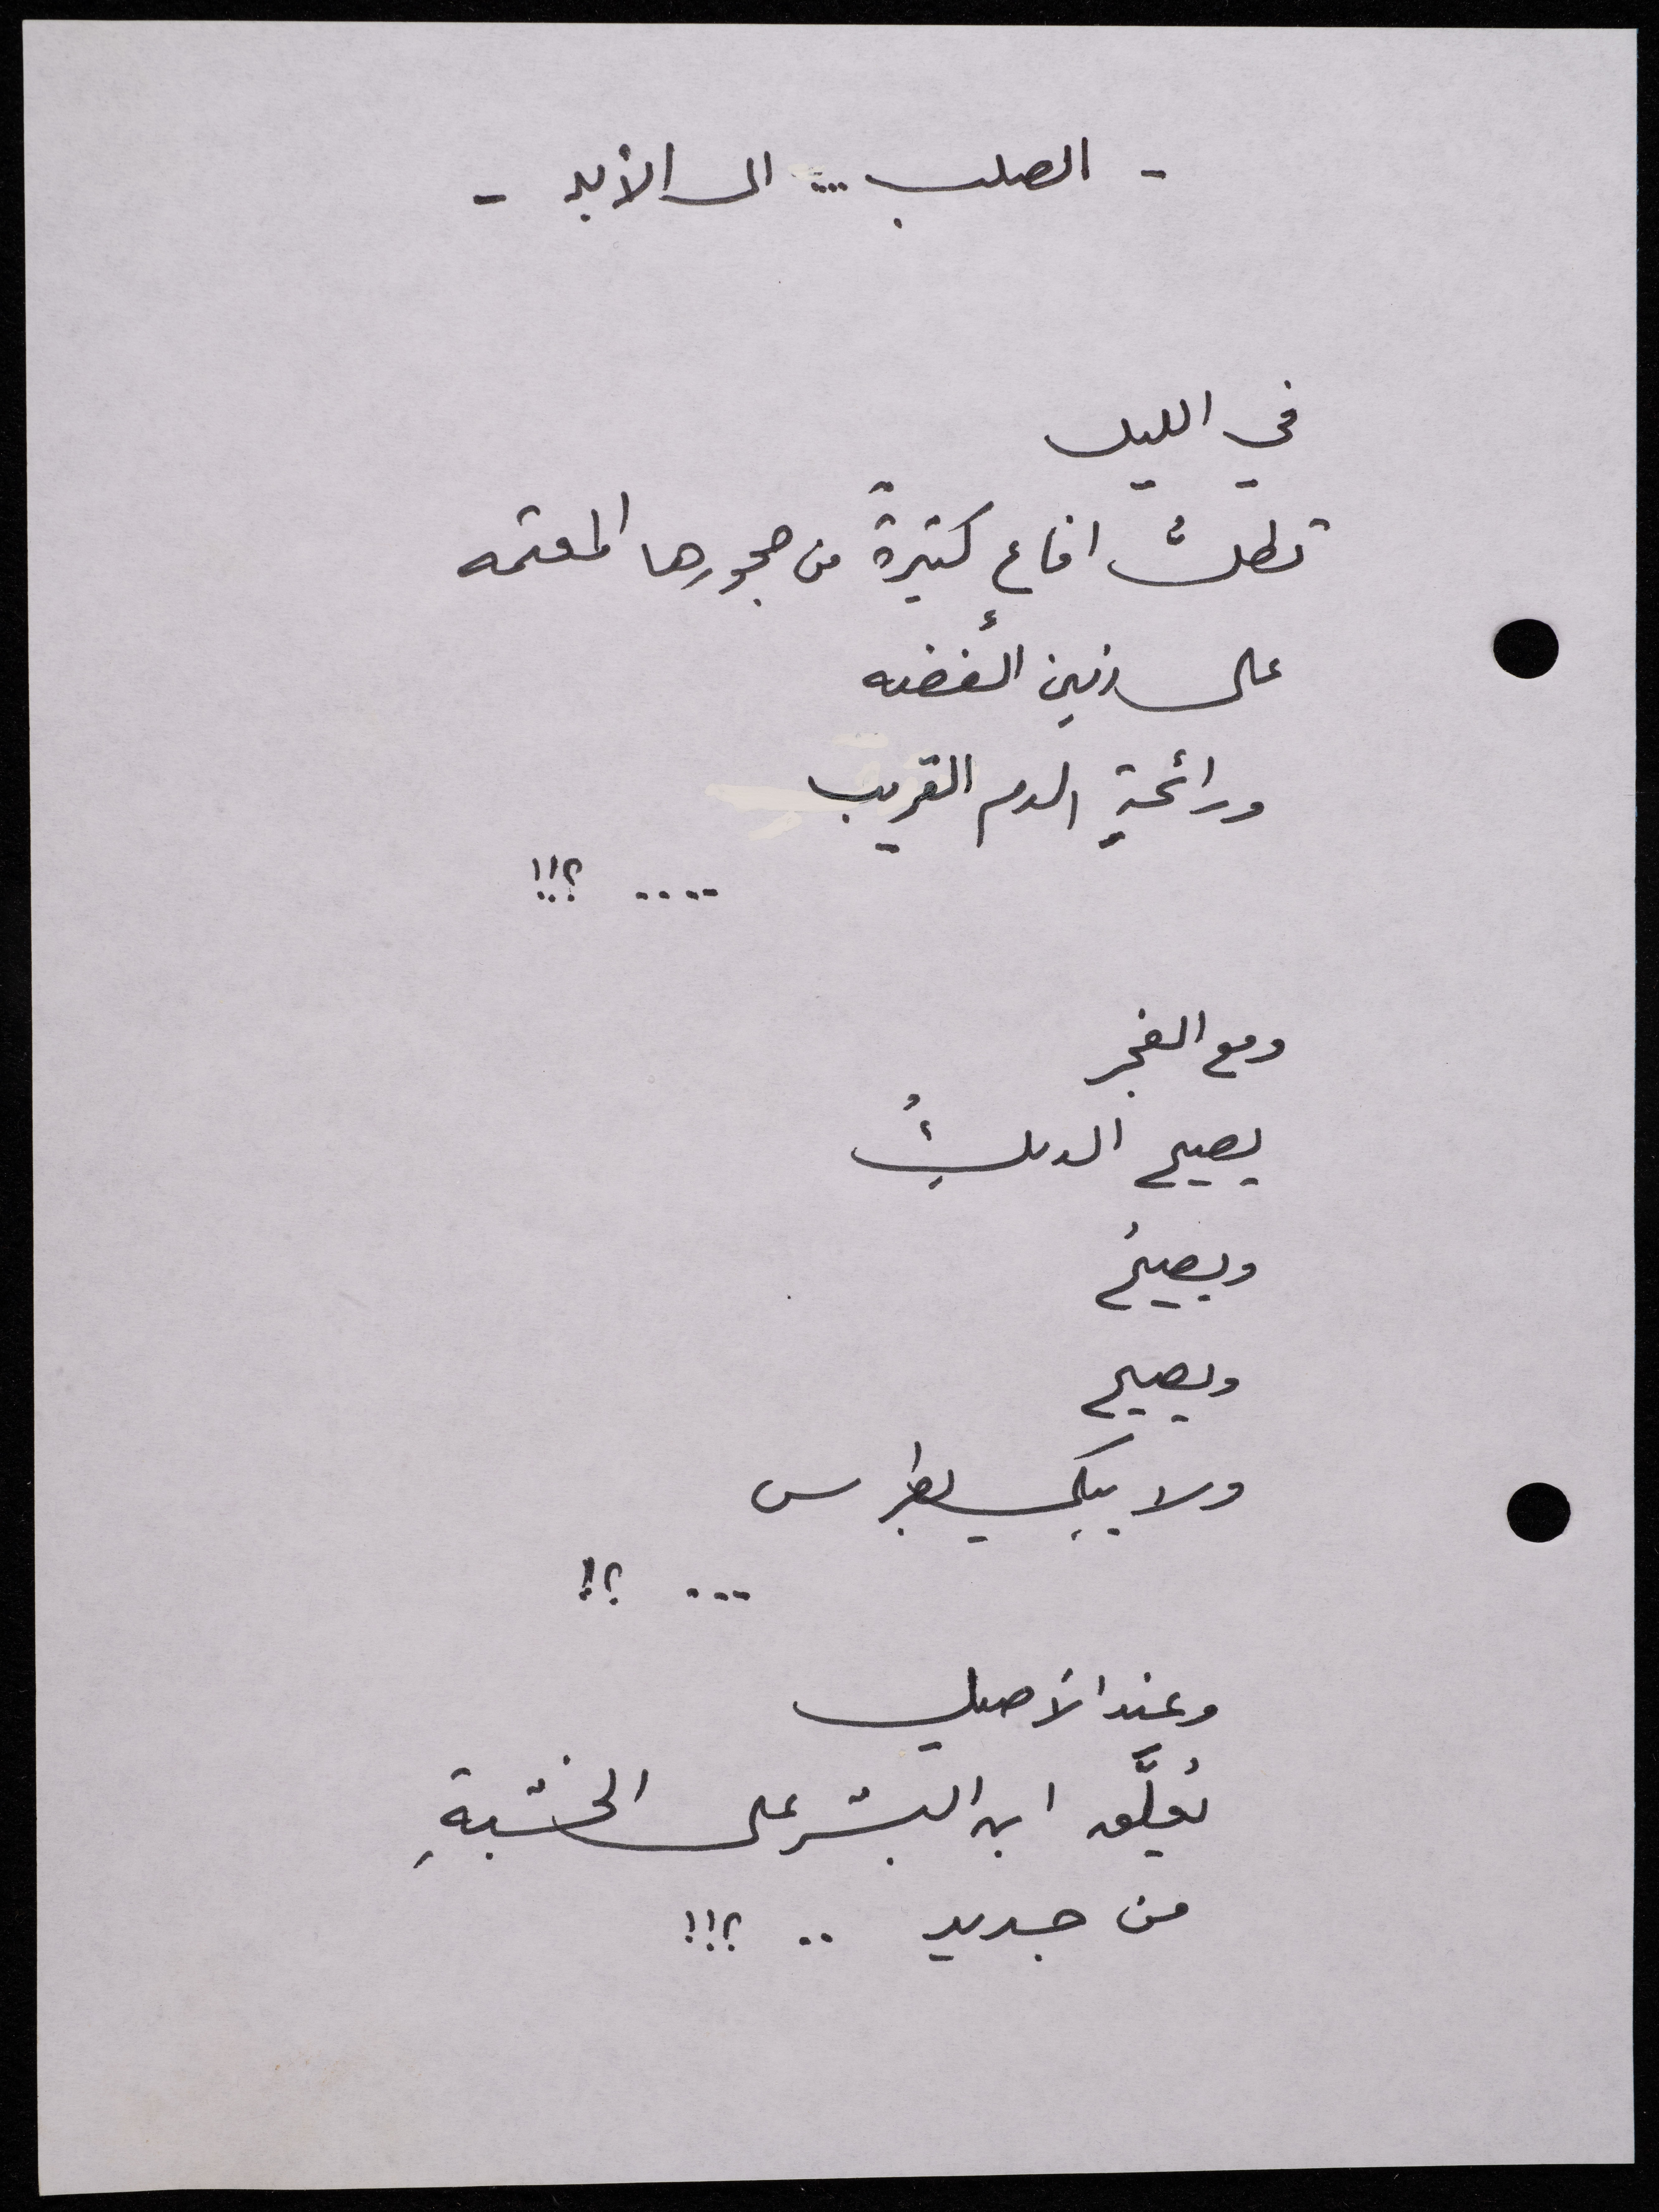 - الصلب .... الى الأبد -
في الليل
تطلُّ افاعٍ كثيرةٌ من جحورها المعتمه
على رنين الفضه
ورائحةِ الدم القريب
.... ؟!!
ومع الفجر
يصيح الديكُ
ويصيحُ
ويصيح
ولا يبكي بطرس
... ؟!
وعند الأصيل
يُعلَّق ابن البشر على الخشبةِ
من جديد .. ؟!!